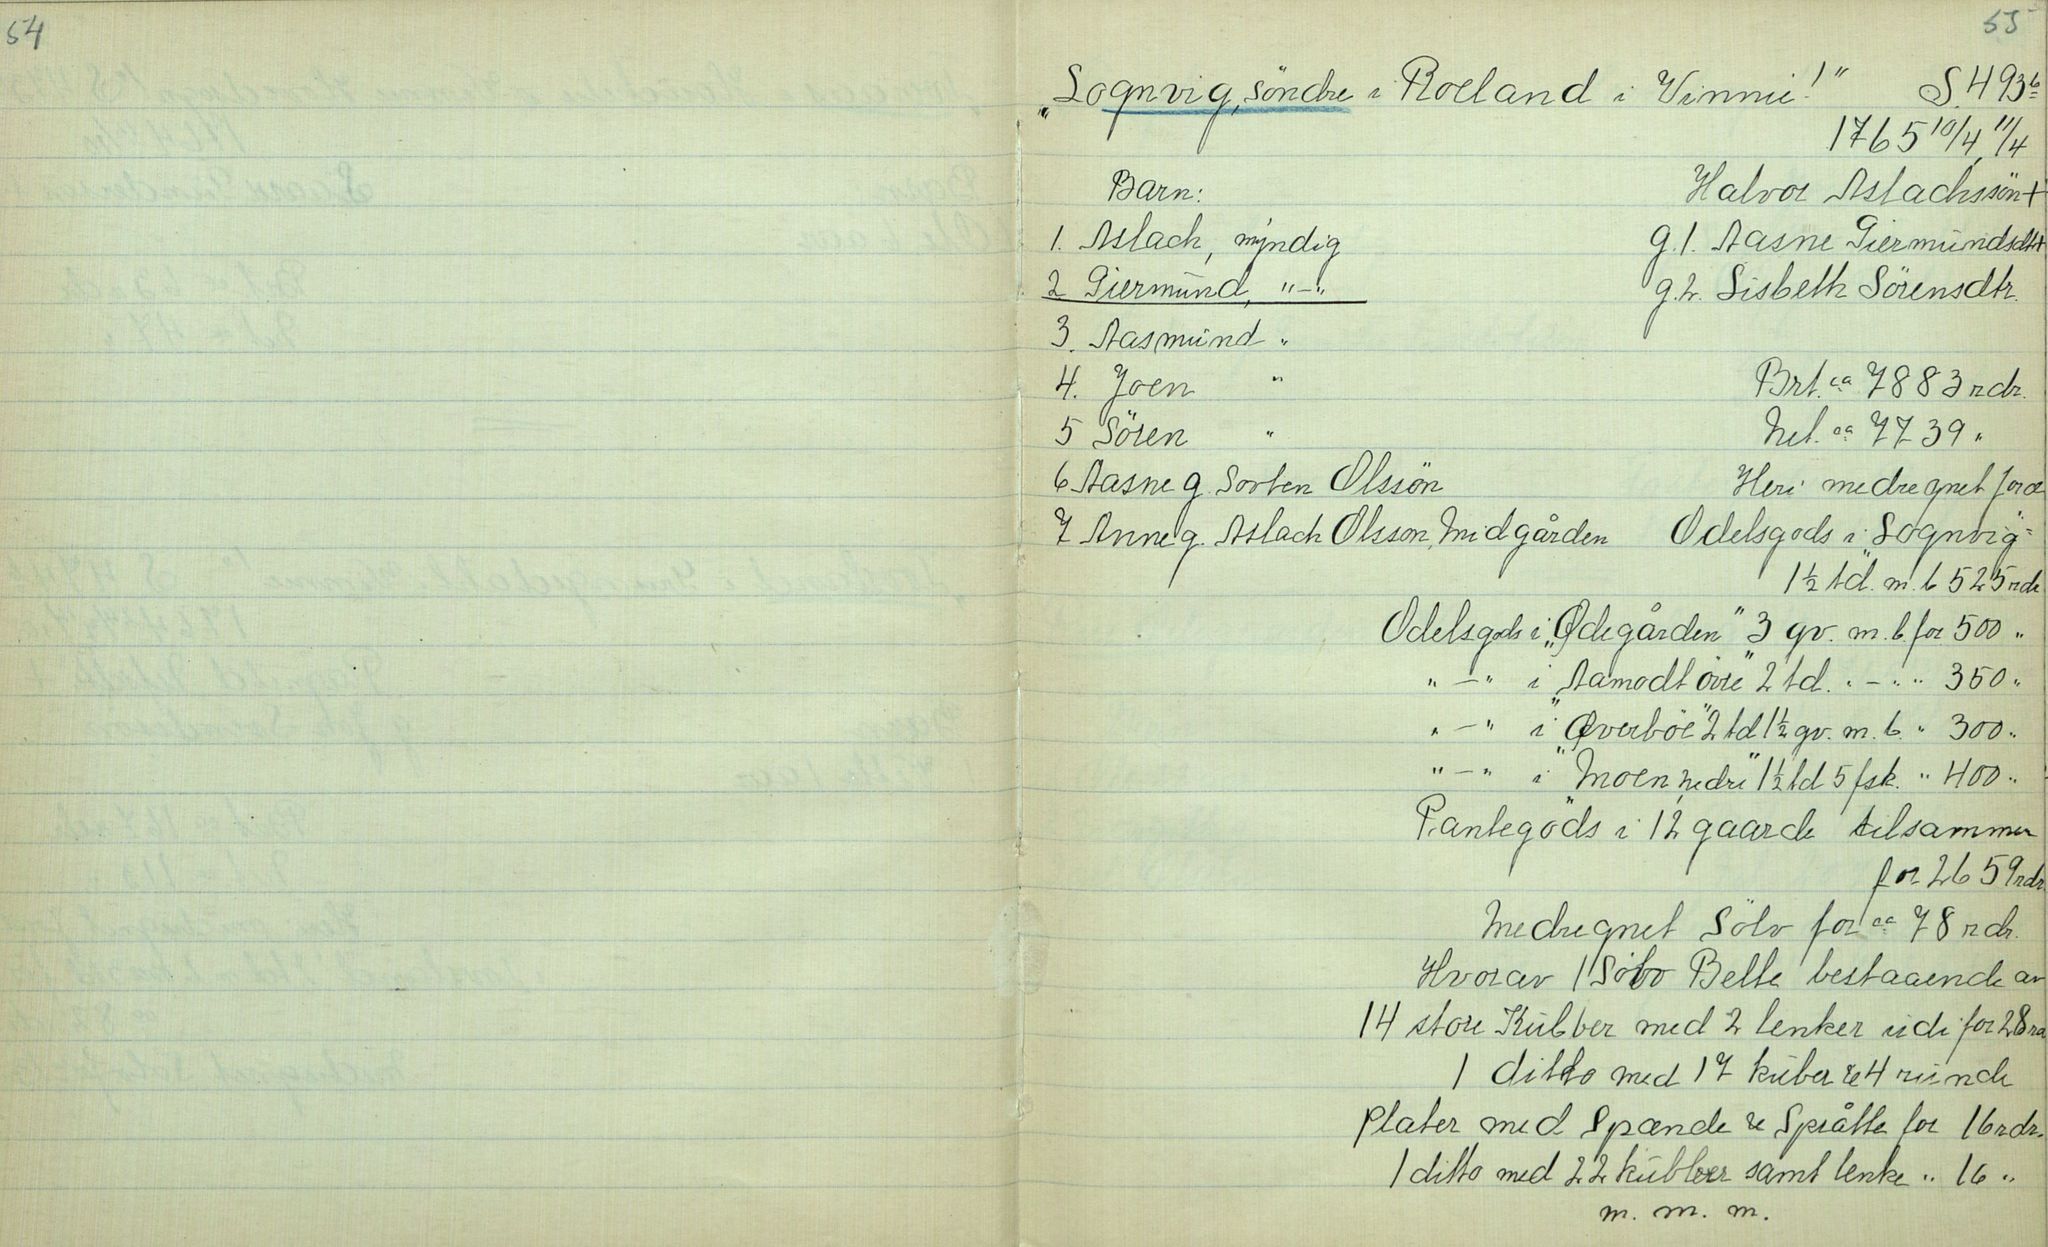 54
55
"Sognvig, söndre i Roeland i Vinnie!" S. 493b
1765 10/4, 11/4
Barn: Halvor Aslachssön +
1. Aslach, myndig g. 1. Aasne Giermundsdtr +
2 Giermund, "—" g. 2. Lisbeth Sörensdtr.
3. Aasmund "
4. Joen " Brt. ca 7883 rdr.
5 Sören " Net. ca 7739 "
6 Aasne g. Sorten Olssön Heri medregnet for
7 Anne g. Aslach Olsson, Midgården Odelsgods i "Sognvig"
1½ td. m. b 525 rdr
Odelsgods i "Ødegården" 3 gv. m. b. for 500 "
"—" i "Aamodt övre" 2 td. "—" " 350 "
"—" i "Øverböe" 2 td 1½ gv. m. b. " 300 "
"—" i "Moen, nedre" 1½ td 5 fsk. " 400 "
Pantegods i 12 gaarde tilsammen
for 2659 rdr
Medregnet Sölv for ca 78 rdr.
Hvorav 1 Sölv Belte bestaaende av
14 store Kubber med 2 lenker udi for 28 rd
1 ditto med 17 kuber & 4 runde
plater med Spænde & Språtte for 16 rdr.
1 ditto med 22 kubber samt lenke " 16 "
m. m. m.